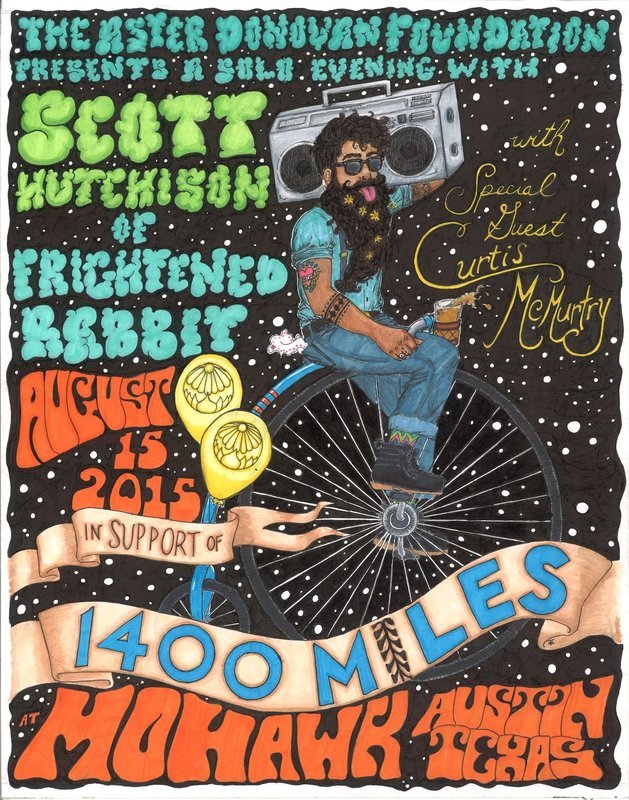 THE ASTER DONOVAN FOUNDATION
PRESENTS A SOLO EVENING WITH
SCOTT
HUTCHISON
OF
FRIGHTENED
RABBIT
with
Special
Guest
Curtis
McMurtry
AUGUST
15
2015
IN SUPPORT OF
1400 MILES
AT MOHAWK AUSTIN
TEXAS